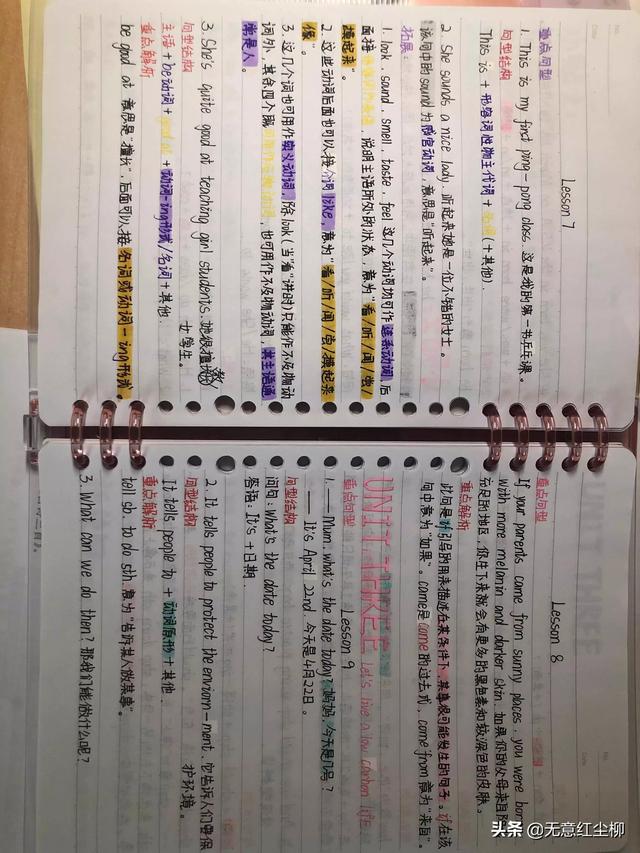 Lesson 7
重点句型
1. This is my first ping-pong class. 这是我的第一节乒乓课。
句型结构
This is + 形容词性物主代词 + 名词(+其他).
2. She sounds a nice lady. 听起来她是一位不错的女士。
该句中的sound为感官动词，意思是“听起来”。
拓展：
1. look, sound, smell, taste, feel 这几个动词均可作连系动词, 后
面接 说明主语所处的状态，意为“看/听/闻/尝/
摸起来”。
2. 这些动词后面也可以接介词like, 意为“看/听/闻/尝/摸起来
像”。
3. 这几个词也可用作实义动词, 除look(当“看”讲时)只能作不及物动
词外，其余四个既 也可用作不及物动词，其主语通
常是人。
3. She's quite good at teaching girl students. 她很擅长教
女学生。
句型结构
主语 + be动词 + good at + 动词-ing形式/名词 + 其他.
重点解析
be good at 意思是“擅长”, 后面可以接名词或动词-ing形式。
Lesson 8
重点句型
If your parents came from sunny places, you were born
with more melanin and darker skin. 如果你的父母来自阳
充足的地区，你生下来就会有更多的黑色素和较深色的皮肤。
重点解析
此句是if引导的用来描述在某条件下, 某事很可能发生的句子。if在该
句中意为“如果”。came是come的过去式, come from意为“来自”。
UNIT THREE Let's live a low carbon life
Lesson 9
重点句型
1. —— Mum, what's the date today? 妈妈，今天是几号？
—— It's April 22nd. 今天是4月22日。
句型结构
问句: What's the date today?
答语: It's + 日期.
2. It tells people to protect the environ-ment. 它告诉人们要保
护环境。
句型结构
It tells people to + 动词原形 + 其他.
重点解析
tell sb. to do sth. 意为“告诉某人做某事”。
3. What can we do then? 那我们能做什么呢？
头条 @无意红尘柳